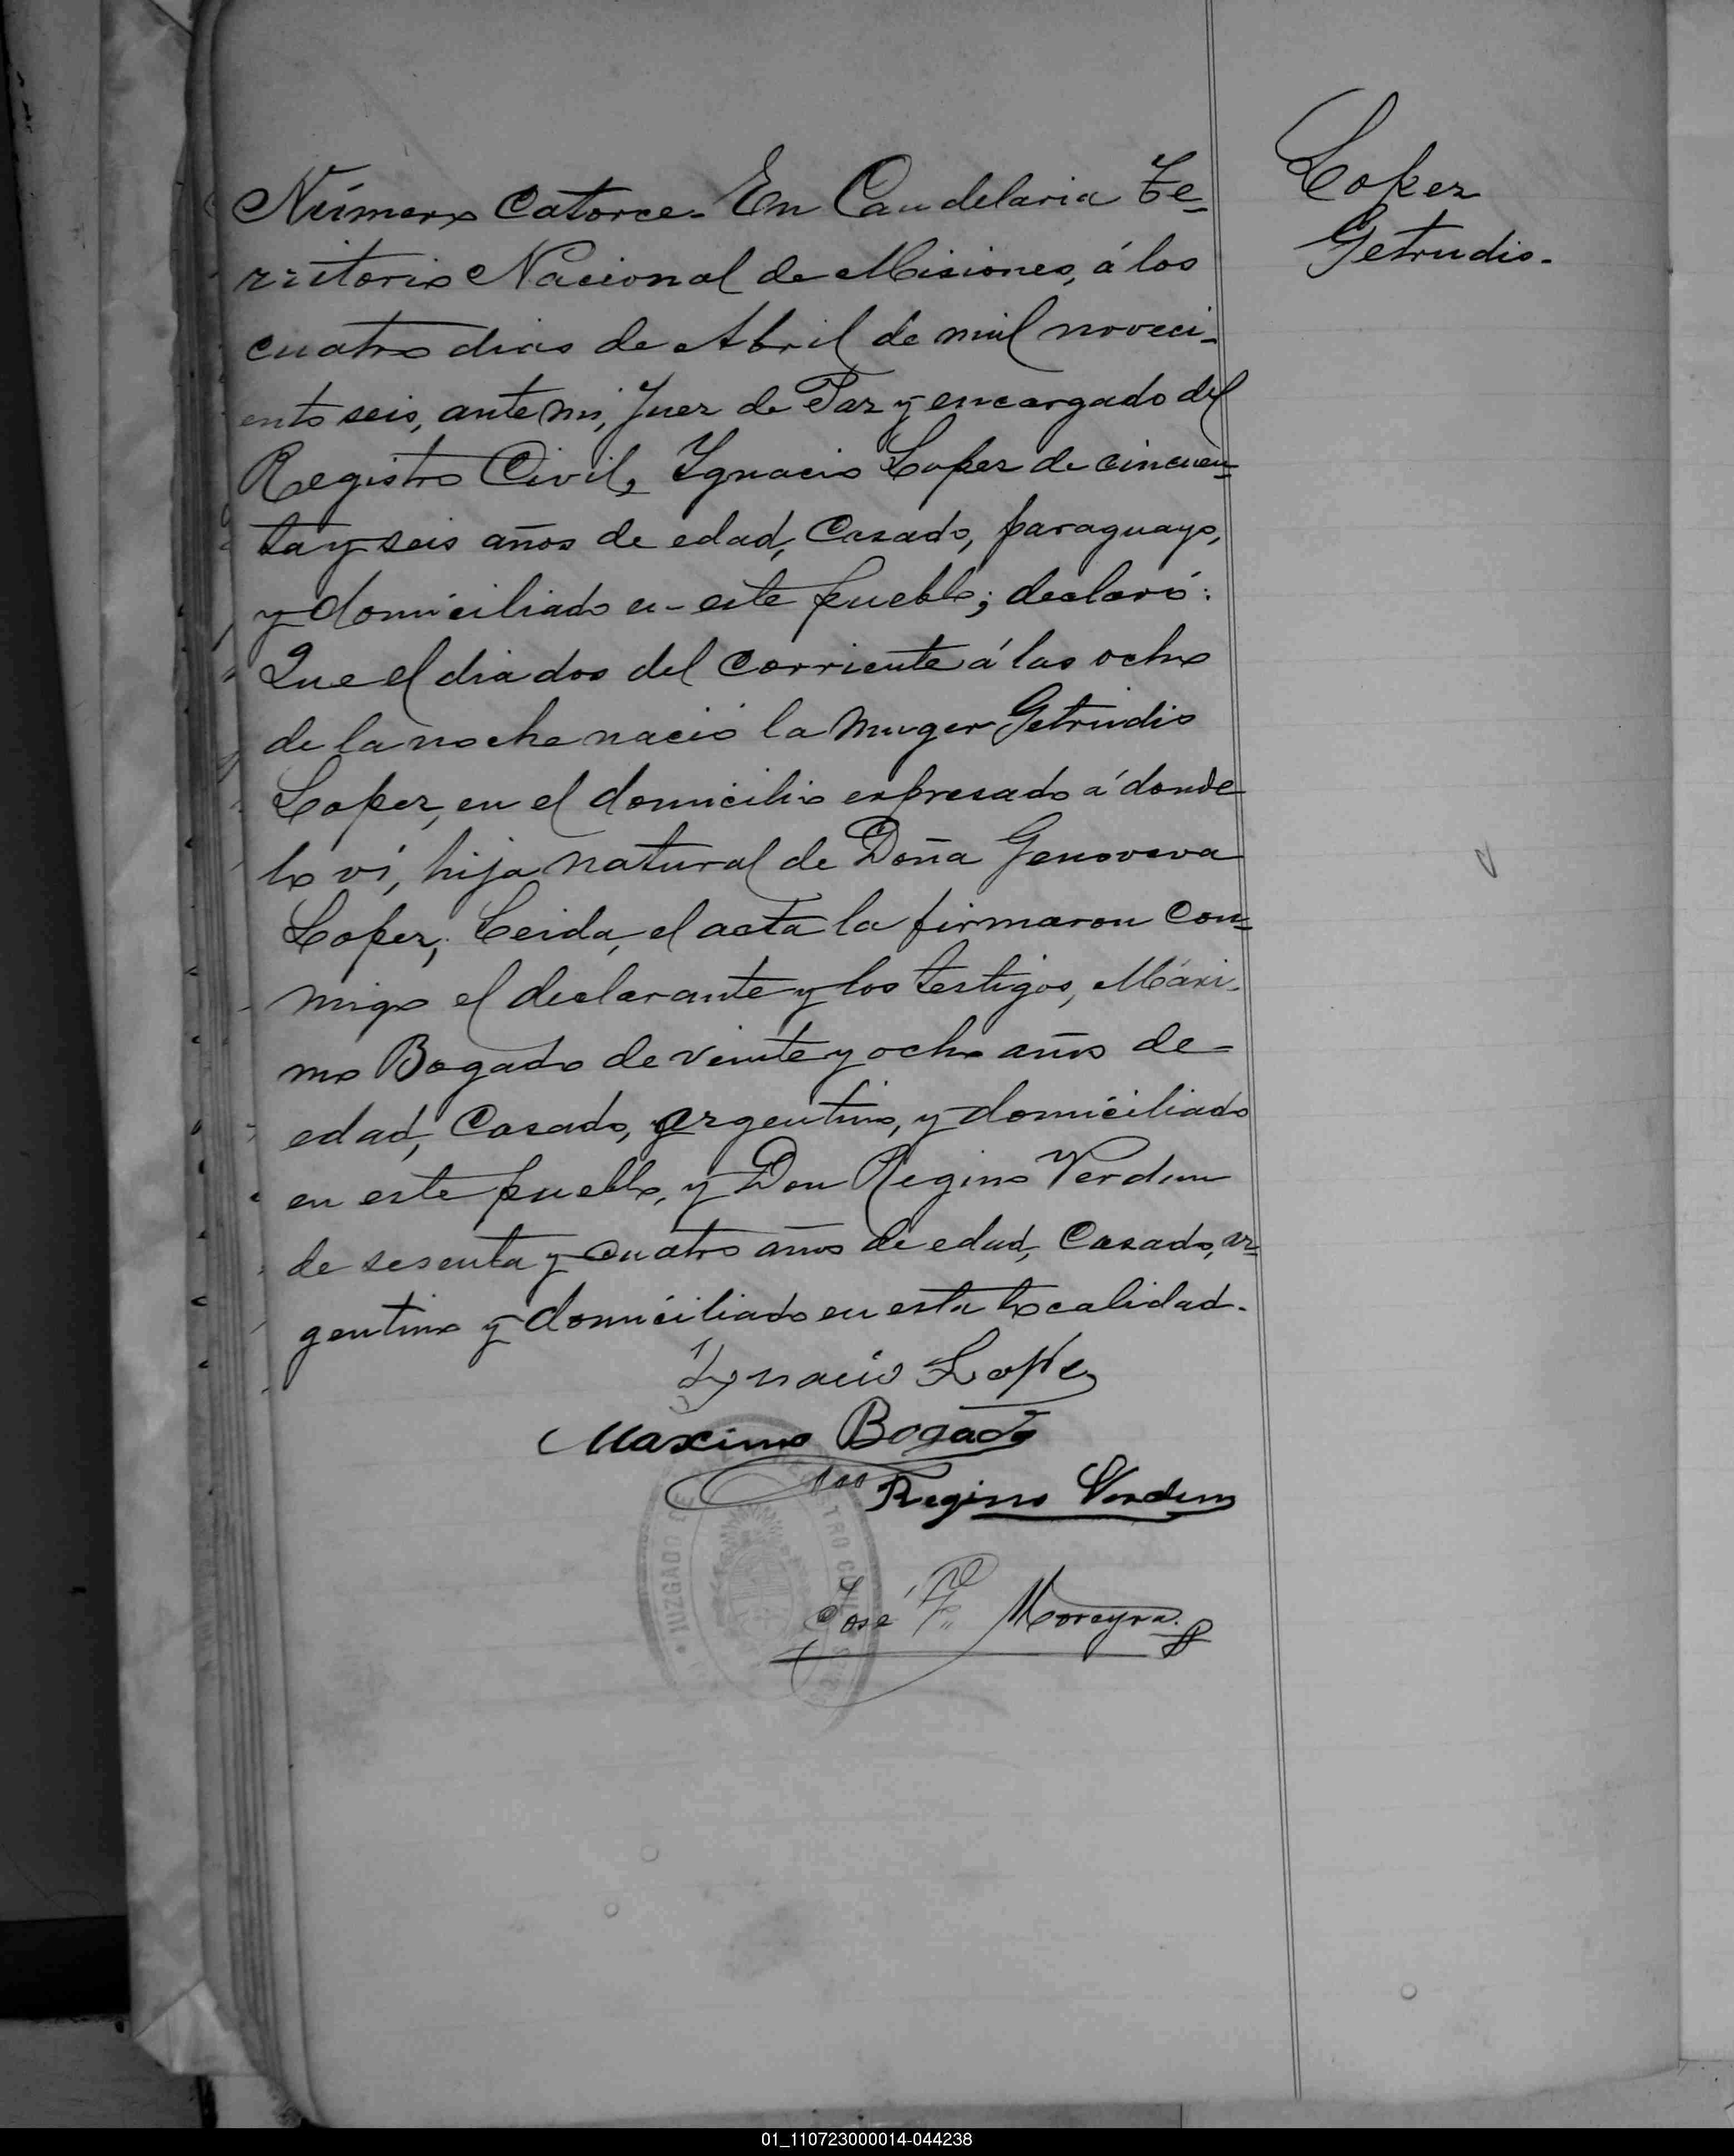 Número Catorce. En Candelaria Te-
rritorio Nacional de Misiones, á los
cuatro dias de Abril de mil noveci-
ento seis, ante mi, Juez de Paz y encargado del
Registro Civil, Ygnacio Lopez de cincuen-
ta y seis años de edad, Casado, paraguayo,
y domiciliado en este pueblo; declaró:
Que el dia dos del Corriente á las ocho
de la noche nació la muger Getrudis
Lopez, en el domicilio expresado á donde
lo ví, hija natural de Doña Genoveva
Lopez; Leida, el acta la firmaron Con-
migo el declarante y los testigos, Máxi-
mo Bogado de veinte y ocho años de
edad, Casado, argentino, y domiciliado
en este pueblo, y Don Regino Verdun
de sesenta y cuatro años de edad, Casado, ar-
gentino y domiciliado en esta localidad.
Ygnacio Lopez
Maximo Bogado
Regino Verdun
José Moreyra
JUZGADO DE
Lopez
Getrudis.
01_110723000014-044238